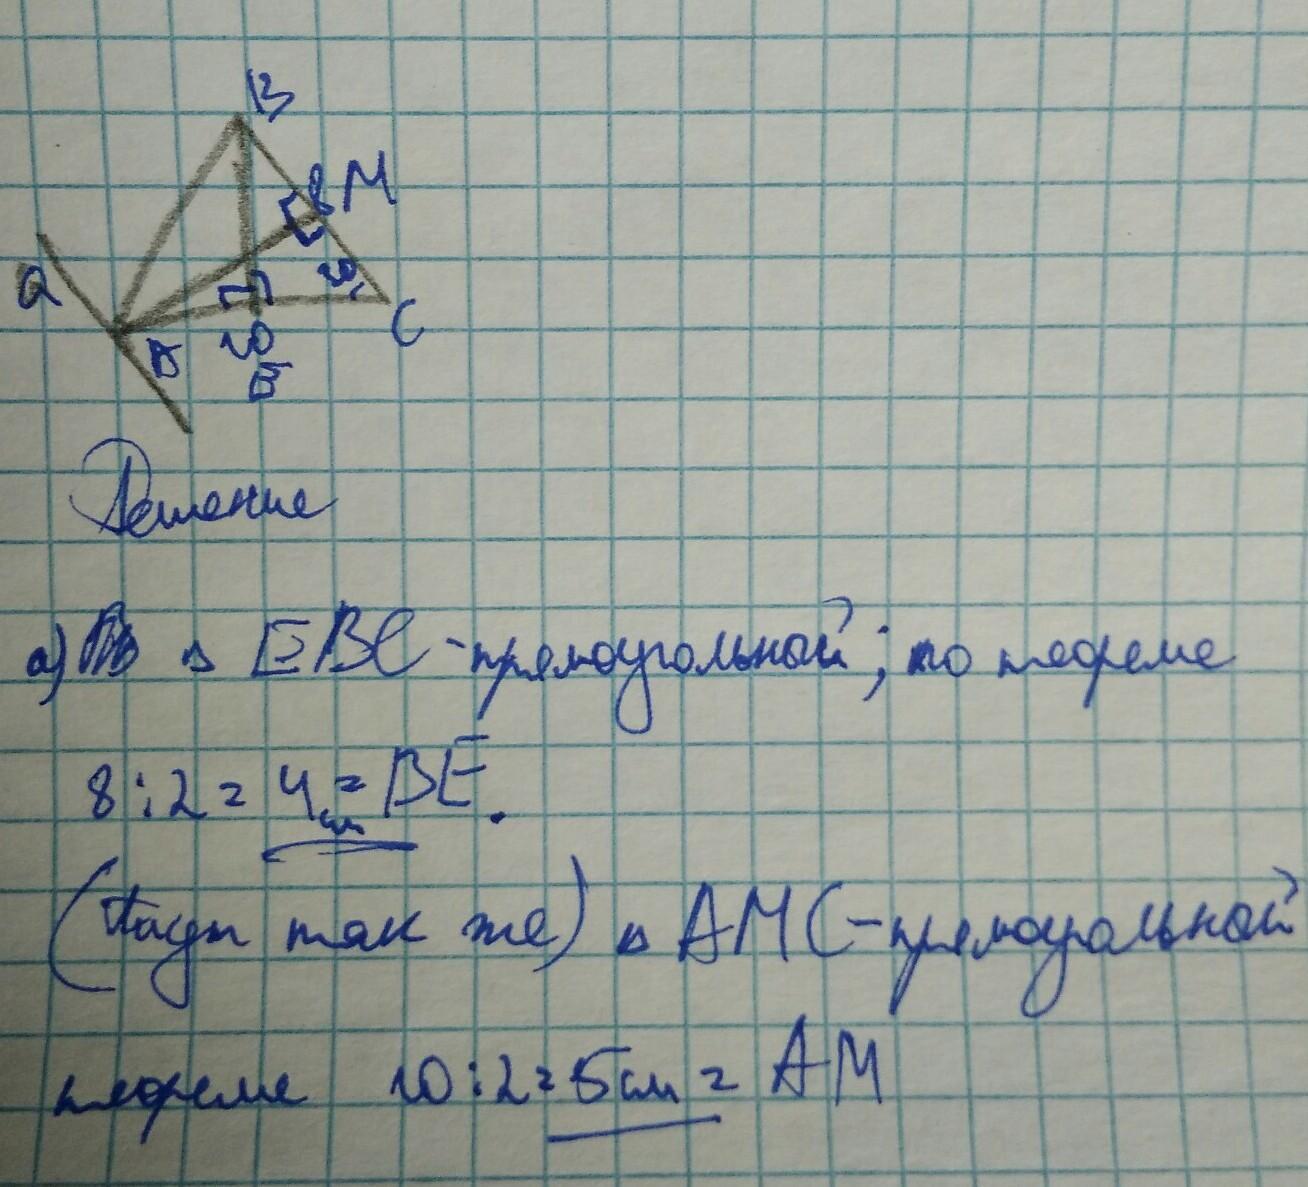 B
8 M
a
30
A
10
E
C
Решение
а) Δ EBC - прямоугольной; по теореме
8 : 2 = 4 см = BE.
( так же) Δ AMC - прямоугольной
теореме 10 : 2 = 5 см = AM